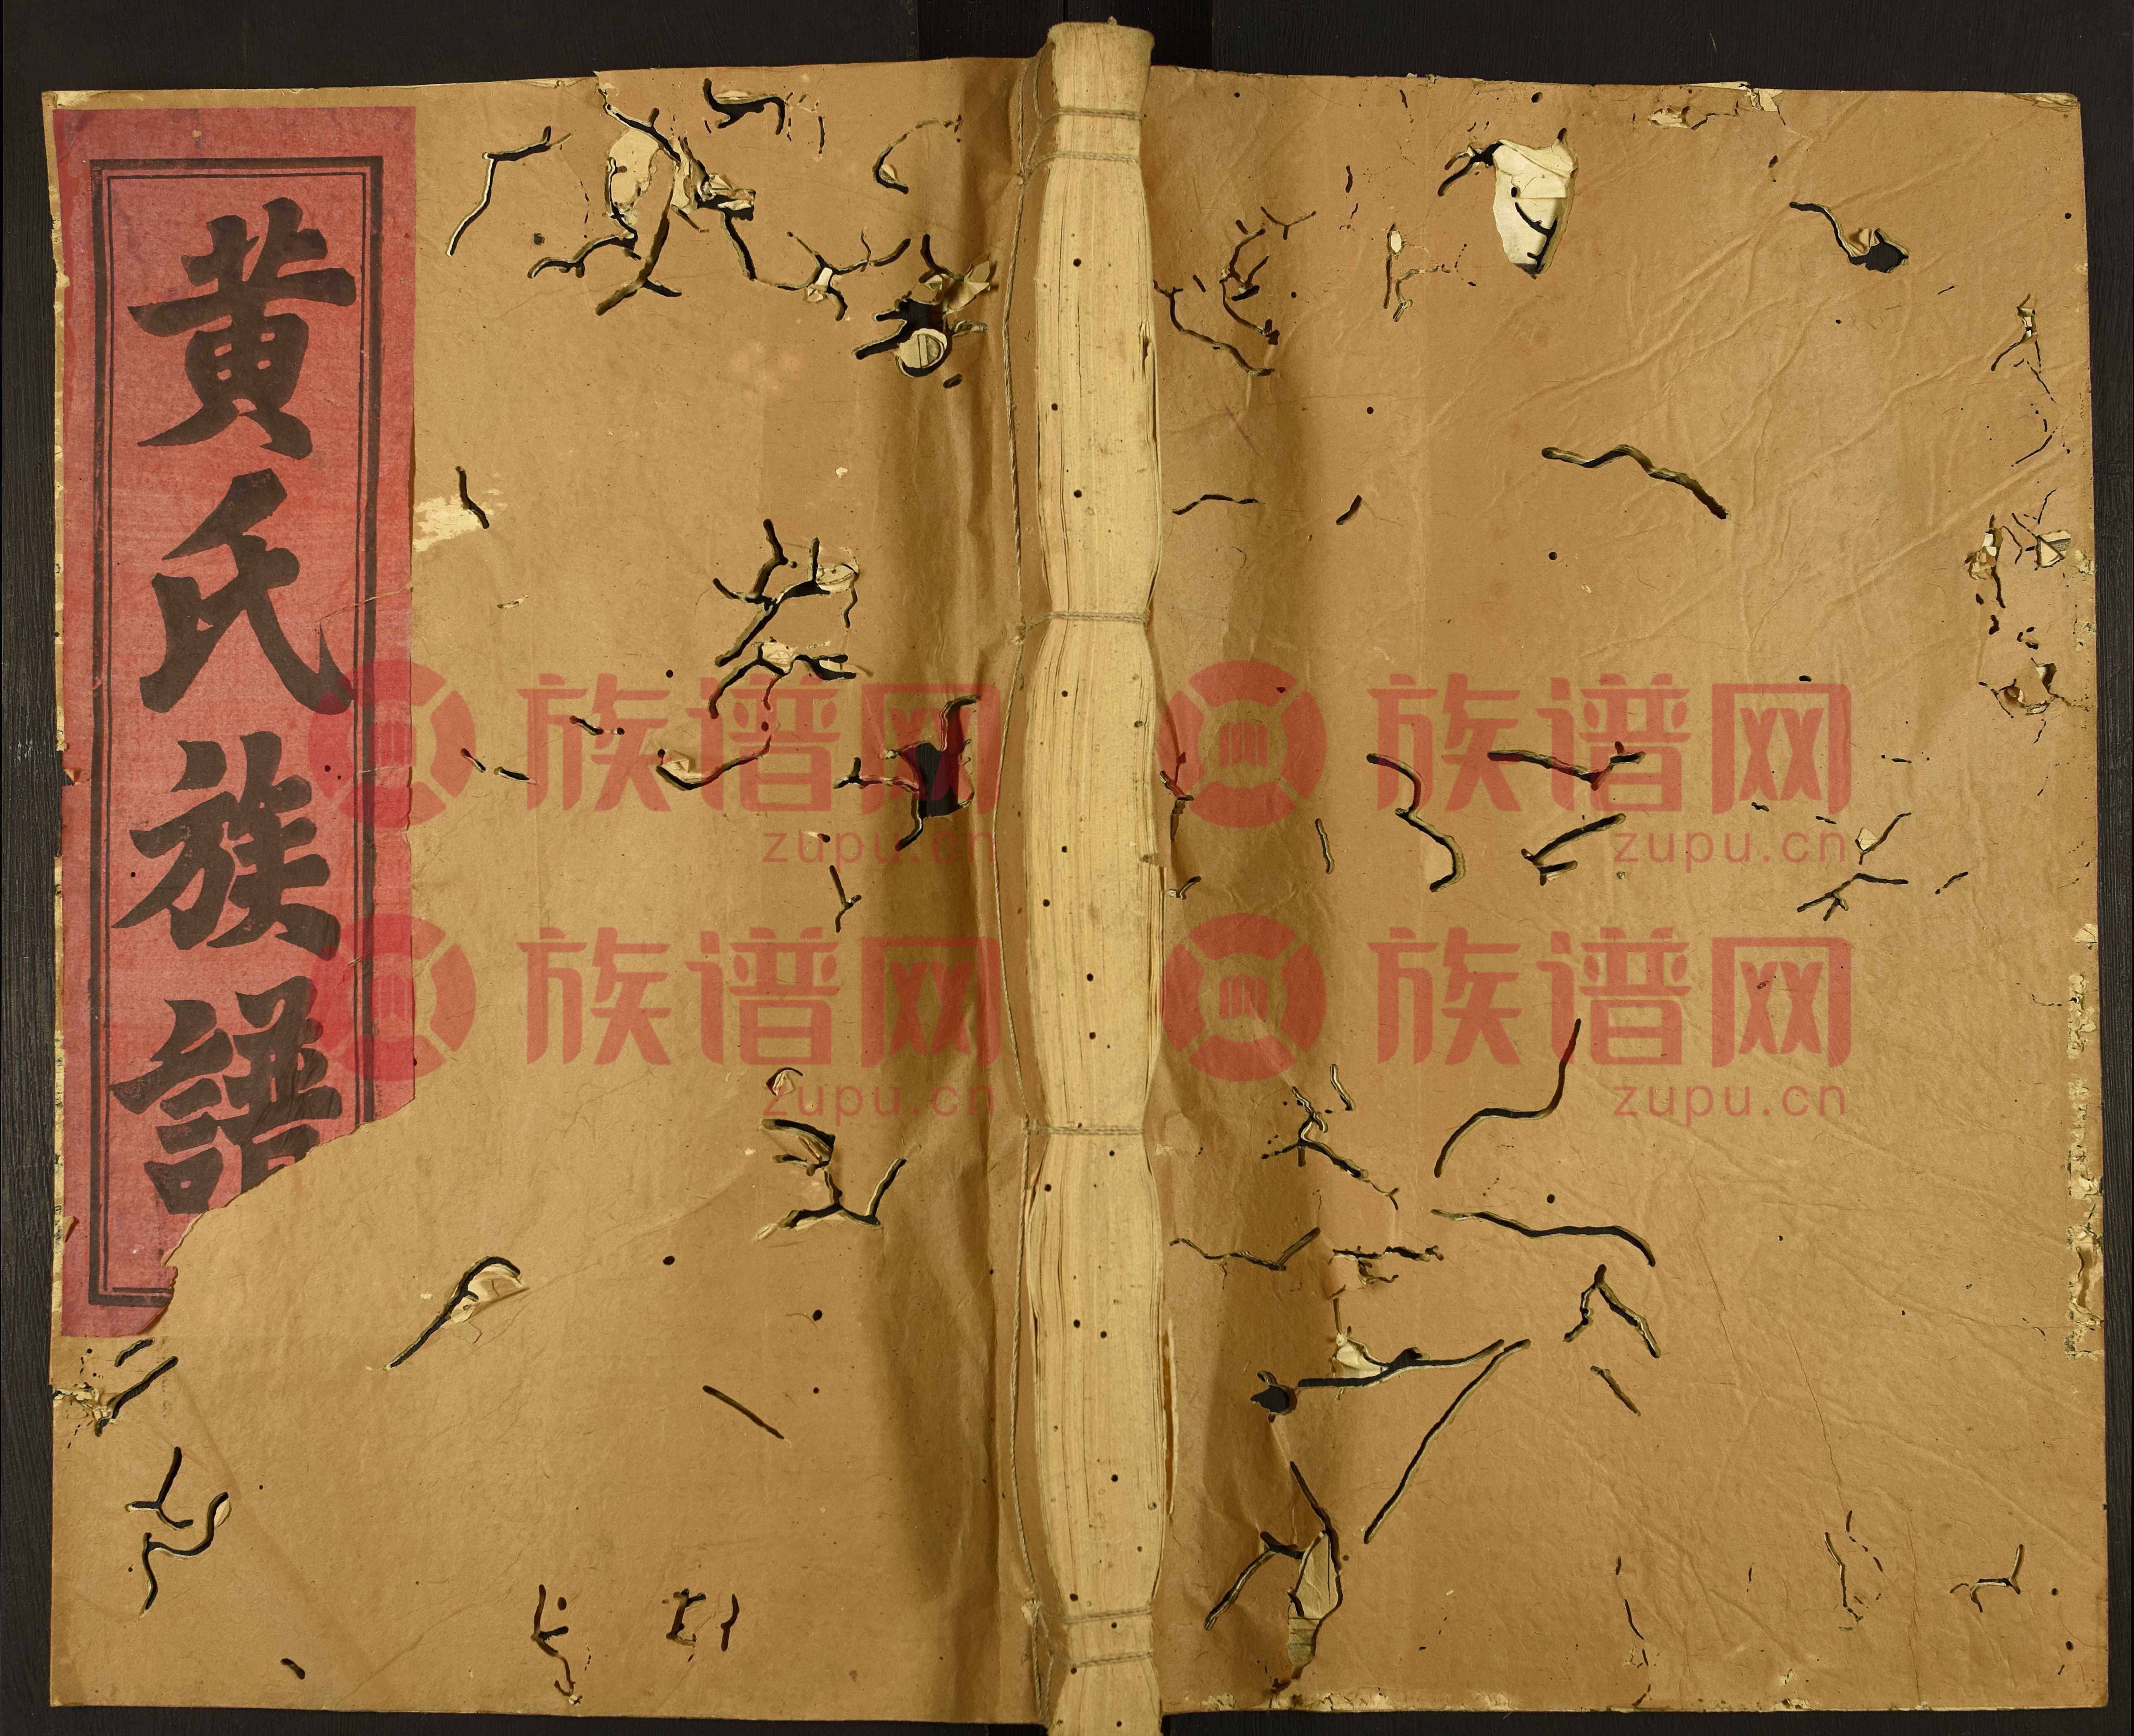 黄氏族譜
族谱网 族谱网
zupu.cn zupu.cn
族谱网 族谱网
zupu.cn zupu.cn